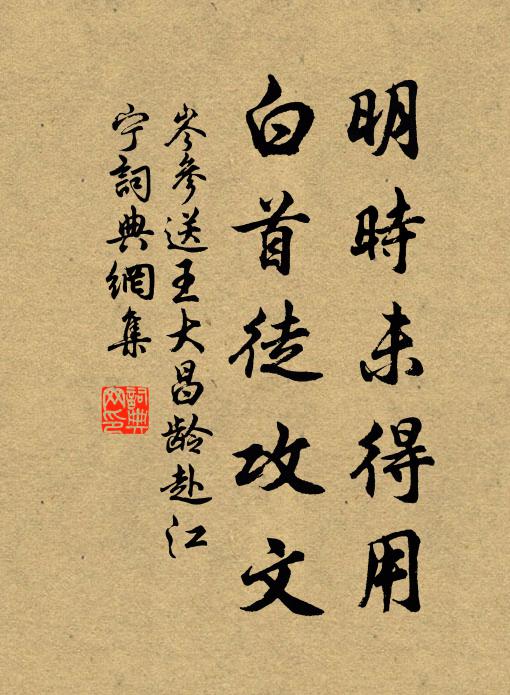 明時未得用
白首徒攻文
岑參送王大昌龄赴江
宁詞典網集
詞典
网印